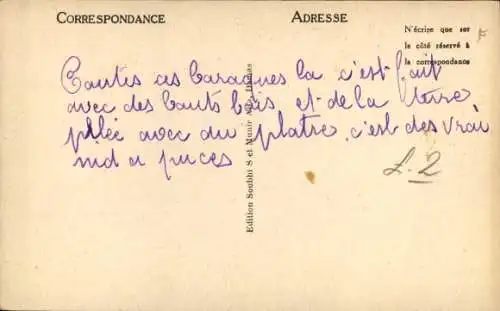 CORRESPONDANCE
ADRESSE
N'écrire que sur
le côté réservé à
la correspondance
Toutes ces baraques la c'est fait
avec des bouts bois et de la terre
pilée avec du platre. c'est des vrai
nid a puces
£-2
Edition Soubhi S et Munir Aïta Damas